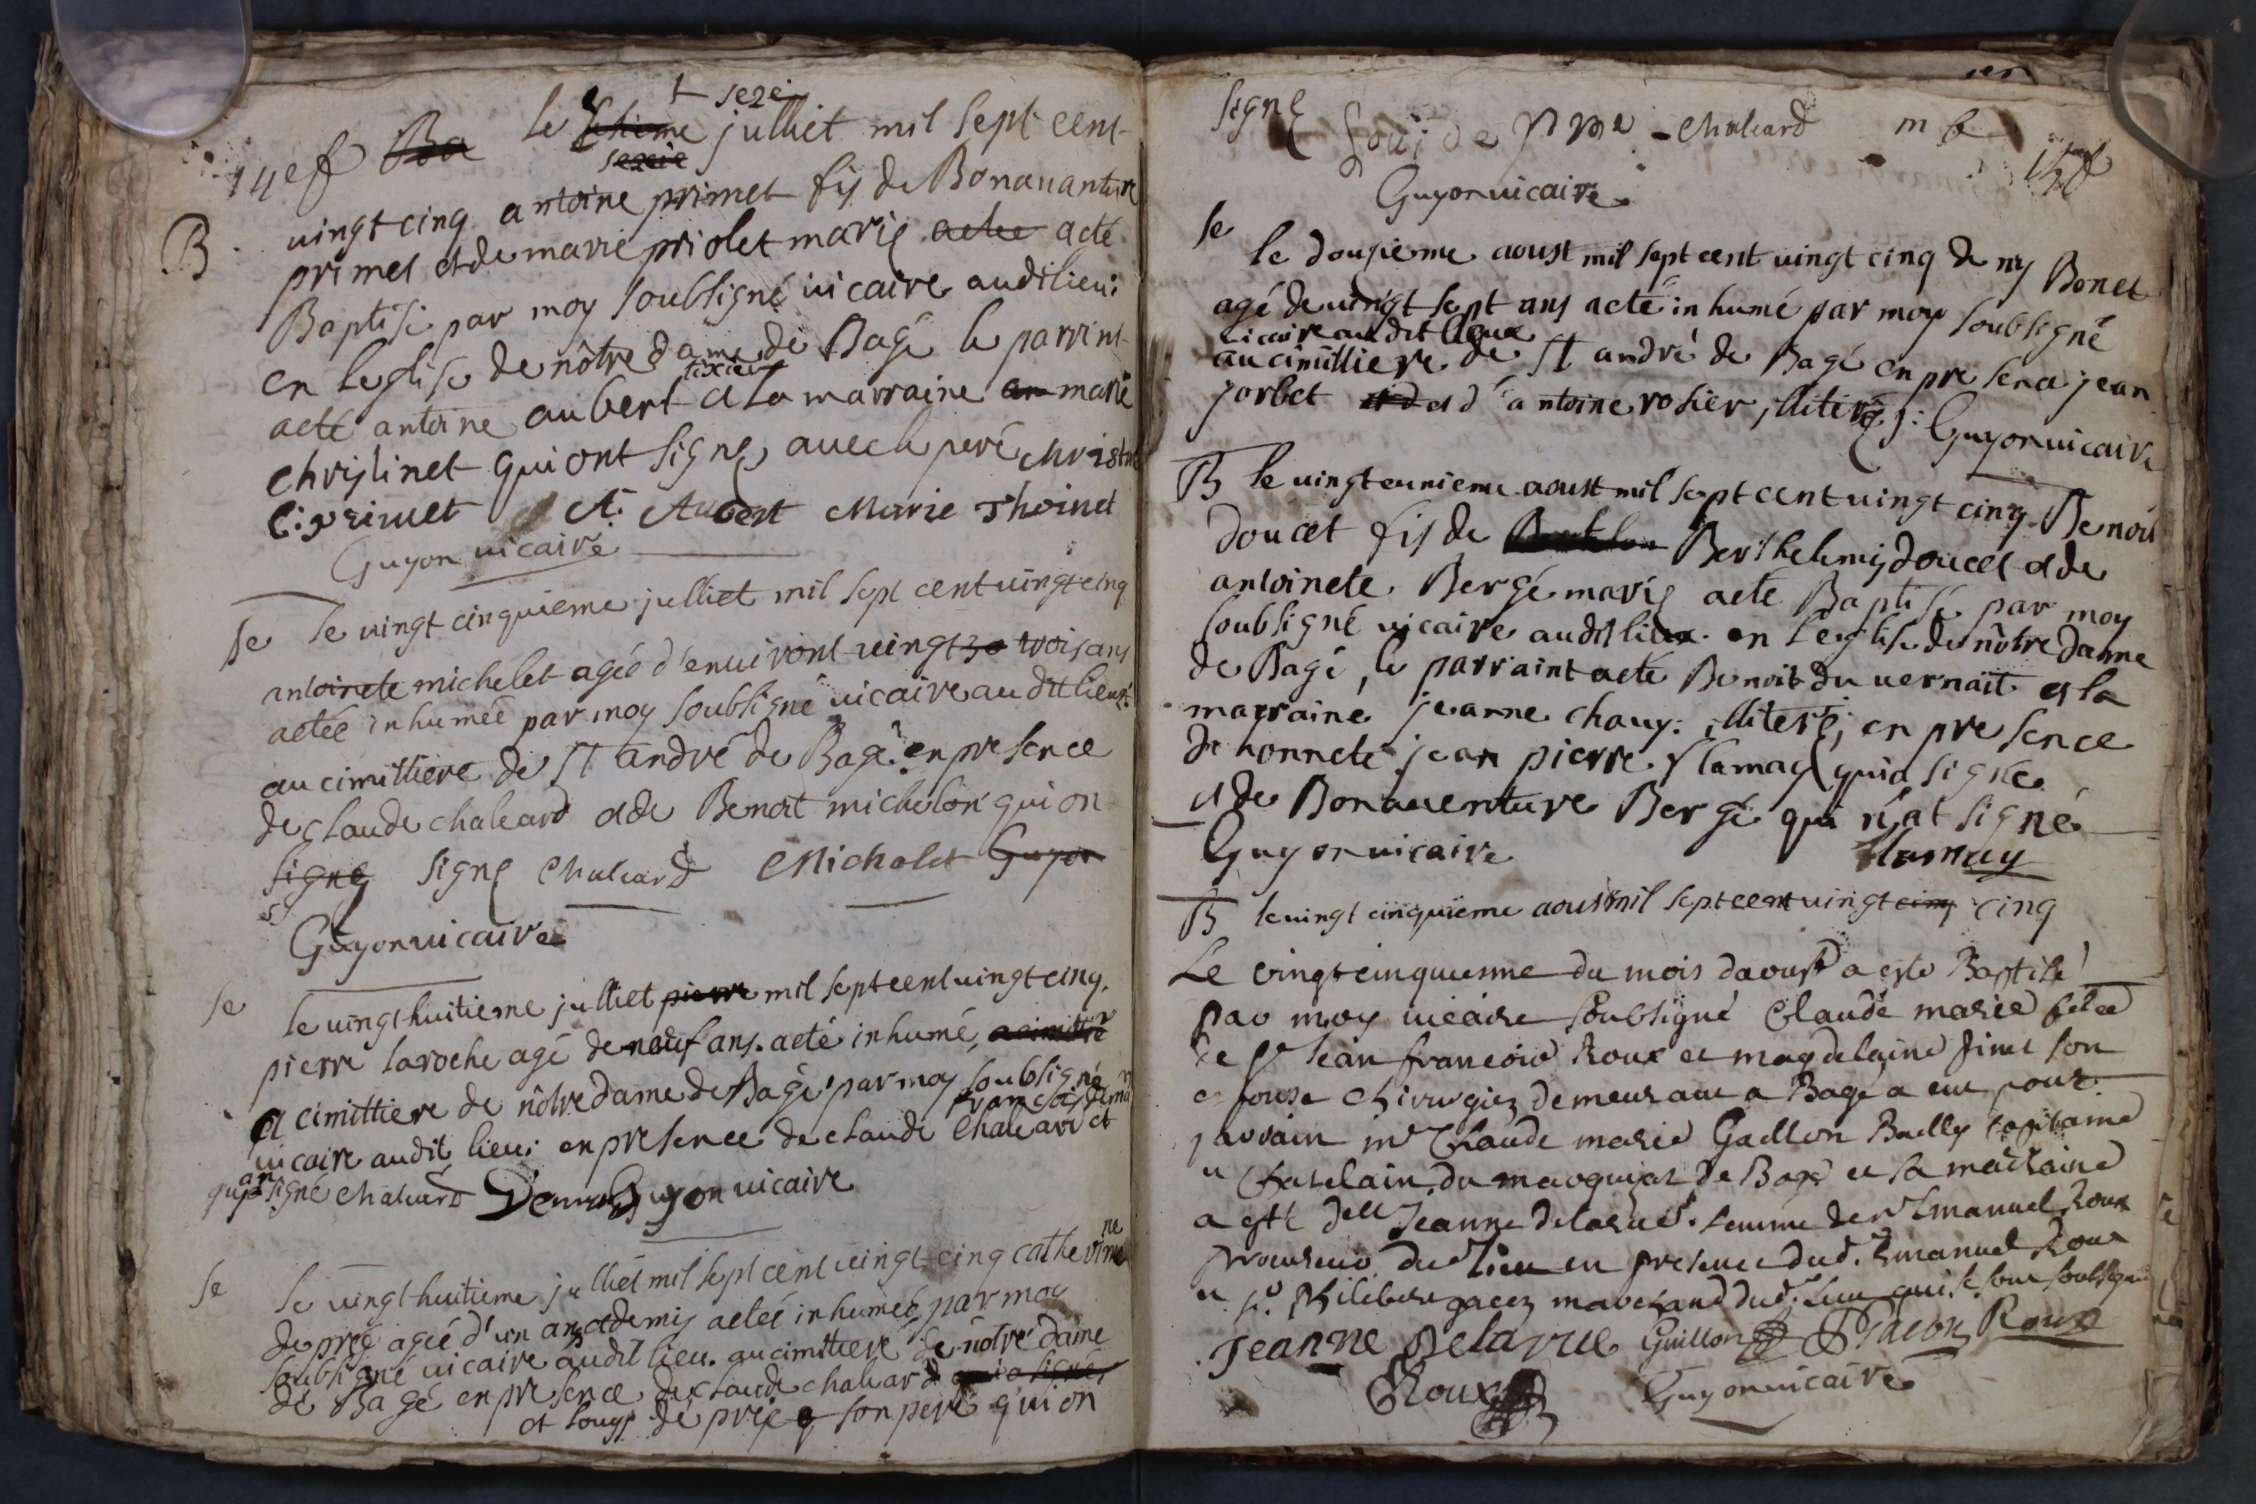 seze
14e f le julliet mil sept cent
B vingt cinq antoine primet fis de Bonavanture
primet et de marie priolet mariés acté
Baptisé par moy soubsigné vicaire audit lieu:
en l'eglise de nôtre dame de Bagé le parrint
acté antoine aubert tixier et la marraine marie
christinet qui ont signés avec le peré
primet A. Aubert Marie
Guyon vicaire
se le vingt cinquieme julliet mil sept cent vingt cinq
antoinete michelet agée d'environt vingt trois ans
actée inhumée par moy soubsigné vicaire au dit lieux:
au cimittiere de st andré de Bagé en presence
de claude chaleard et de Benoit michelon qui on
signé signé Chaleard Michelet Guyon
Guyon vicaire
se le vingt huitieme julliet pierre mil sept cent vingt cinq,
pierre laroche agé de neuf ans. acté inhumé,
a cimittiere de nôtre dame de Bagé par moy soubsigné
vicaire audit lieu: en presence de claude Chaleard et
signé chaleard Guyon vicaire
se le vingt huitieme julliet mil sept cent vingt cinq catherine
de preé agée d'un ans et demis actée inhumeé, par moy
soubsigné vicaire audit lieu. au cimittiere de nôtre dame
de Bagé en presence de claude chaleard
et louys de preé son peré qui on
signé Chaleard
Guyon vicaire
se le dousieme aoust mil sept cent vingt cinq deny Bonet
agé de vingt sept ans acté inhumé par moy soubsigné
vicaire au dit lieux
au cimittiere de st andré de Bagé en presence jean
jorbet et d'antoine rosier, illiterés: Guyon vicaire
B le vingt eunieme aoust mil sept cent vingt cinq Benoit
doucet fis de Berthelemy doucet et de
antoinete Bergé mariés acte Baptisé par moy
soubsigné vicaire audit lieux en l'eglise de nôtre dame
de Bagé, le parraint acté Benoit du vernait et la
marraine jeanne chauy: illiterés; en presence
de honneté jean pierre flamaq qui a signé
et de Bonaventure Bergé qui n'at signé
Guyon vicaire
B le vingt cinquieme aoust mil sept cent vingt cinq cinq
Le vingt cinquiesme du mois daoust a esté Baptisé
par moy vicaire soubsigné Claude marie
de Sr Jean francois Roux et magdelaine son
epouse chirurgien demeurant a Bagé a eu pour
parrain mr Claude marie Bailly capitaine
chatelain du marquizat de Bagé et sa marraine
a esté delle Jeanne delarue femme de sr Emanuel Roux
procureur du lieu en presence dud. Emanuel Roux
et sr Philibert marchand dud. lieu qui se sont soubsignés
Jeanne Delarue Roux
Roux Guyon vicaire